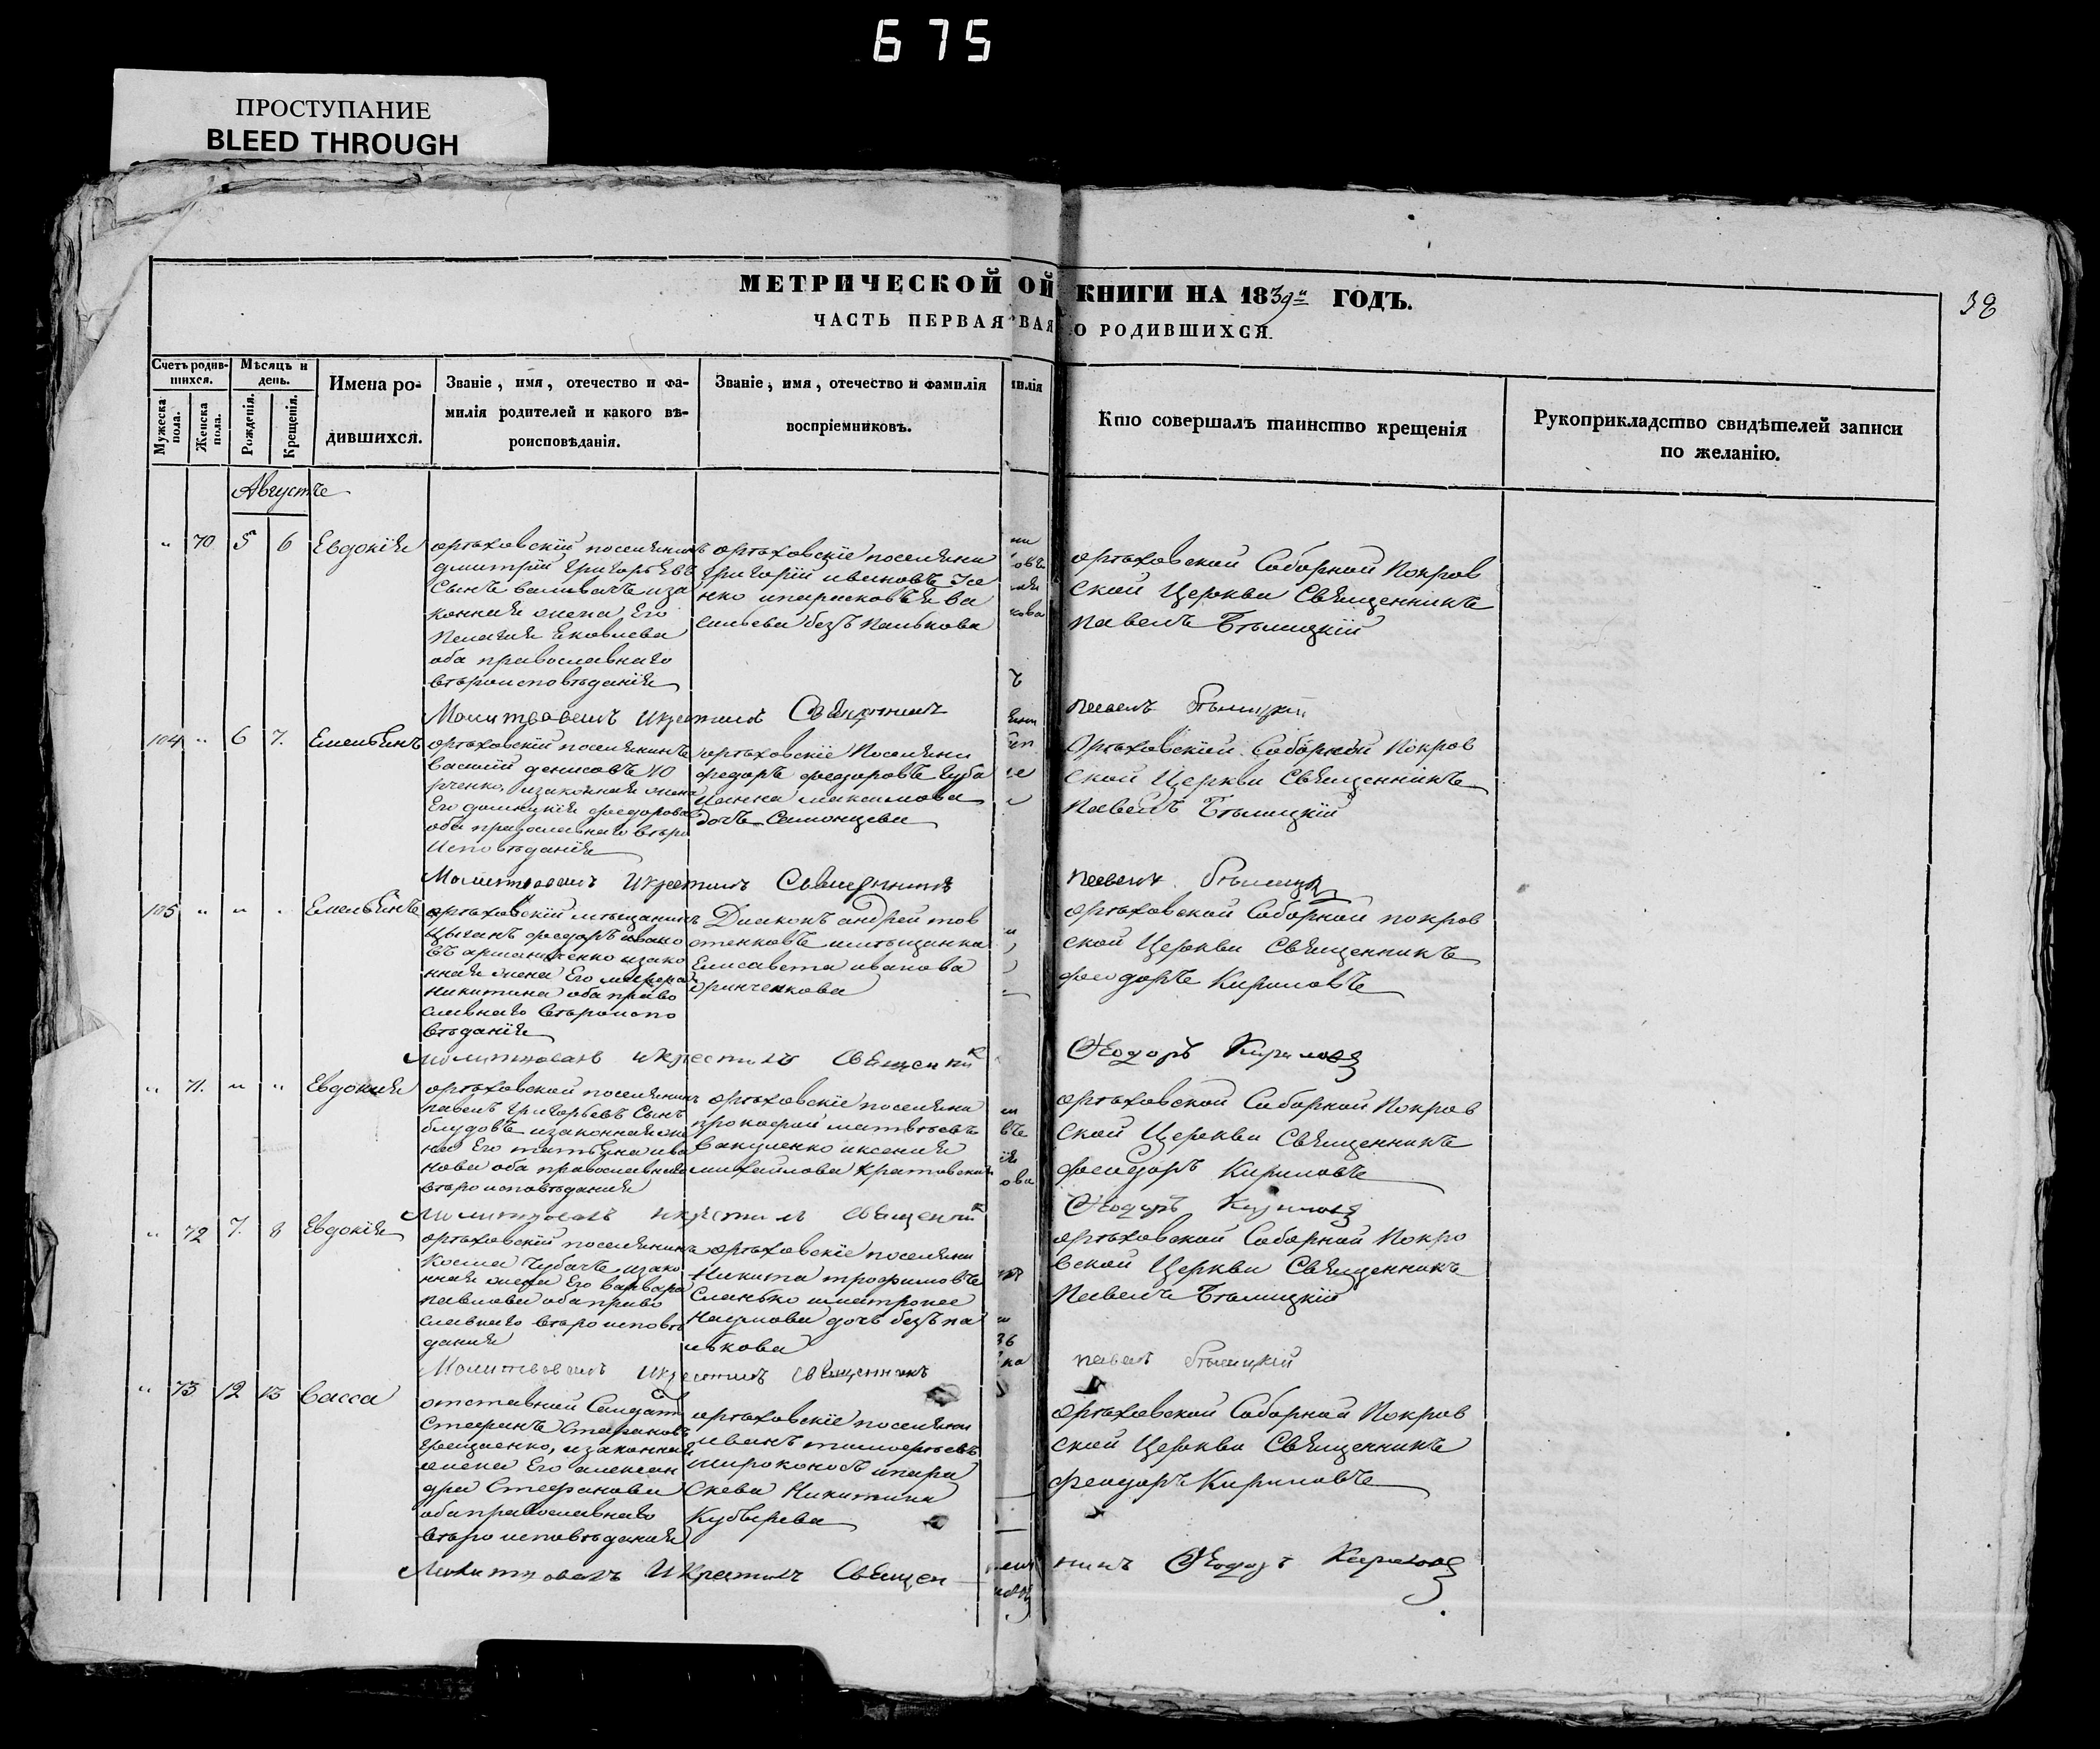 675
ПРОСТУПАНИЕ
BLEED THROUGH
МЕТРИЧЕСКОЙ ОЙ КНИГИ НА 1839й ГОДЪ.
38
ЧАСТЬ ПЕРВАЯ ВАЯ О РОДИВШИХСЯ.
Счетъ родив-
шихся.
Мужеска
пола.
Женска
пола.
Мѣсяцъ и
день.
Рожденія.
Крещенія.
Имена ро-
дившихся.
Званіе, имя, отечество и фа-
милія родителей и какого вѣ-
роисповѣданія.
Званіе, имя, отечество и фамилія
воспріемниковъ.
милія
Кто совершалъ таинство крещенія
Рукоприкладство свидѣтелей записи
по желанію.
Августъ
" 70 5 6 Евдокія
орѣховскій поселянинъ
дмитрій григорьевъ
сынъ иза
конная жена Его
Пелагия Яковлева
оба православнаго
вѣроисповѣданія
орѣховскіе поселяни
григорій ивановъ
нко ипарасковѣя ва
сильева безъ Палькова
орѣховской Соборной Покров
ской Церкви Священникъ
павелъ Бѣлицкій
Молитвовалъ Икрестилъ Священникъ павелъ бѣлицкій
104 " 6 7. Емельянъ
орѣховскій поселянинъ
василий денисовъ Ю
рченко, изаконная жена
Его домникія феодорова
оба православнаго вѣро
Исповѣданія
орѣховскіе Поселяни
федоръ феодоровъ чуба
Ианна максимова
дочь Самонцева
Орѣховской Соборной Покров
ской Церкви Священникъ
Павелъ Бѣлицкій
Молитвовалъ Икрестилъ Священникъ павелъ бѣлицкій
105 " " . Емельянъ
орѣховскій мѣщанинъ
цыганъ федоръ ивано
въ изако
нная жена Его
никитина оба право
славнаго вѣроиспо
вѣданія
Диаконъ андрей тов
стенковъ имѣщанка
Елисавета иванова
орѣховской Соборной покров
ской Церкви Священникъ
феодоръ Кириловъ
Молитвовалъ икрестилъ Священникъ Феодоръ Кириловъ
" 71. " " Евдокия
орѣховской поселянинъ
павелъ григорьевъ Сынъ
блудовъ изаконная же
на Его татьяна ива
нова оба православнаго
вѣроисповѣдания
орѣховскіе поселяни
прокофий матвѣевъ
вакуленко иксения
михайлова
орѣховской Соборной Покров
ской Церкви Священникъ
феодоръ Кириловъ
Молитвовалъ икрестилъ Священникъ Феодоръ Кириловъ
" 72 7. 8 Евдокія
орѣховскій поселянинъ
Косма Чубачъ изако
нная жена Его варвара
павлова оба право
славнаго вѣроисповѣ
дания
орѣховскіе поселяни
Никита трофимовъ
Сланько иматрона
Наумова дочь безъ па
лькова
орѣховской Соборной Покро
вской Церкви Священникъ
Павелъ Бѣлицкій
Молитвовалъ Икрестилъ Священникъ павелъ бѣлицкій
" 73 12 13 Васса
отставной Салдатъ
Стефанъ Стефановъ
изаконная
жена Его алексан
дра Стефанова
оба православнаго
вѣроисповѣдания
орѣховскіе поселяни
иванъ тимофѣевъ
широконосъ ипара
скева Никитина
Кубырева
орѣховской Соборной Покров
ской Церкви Священникъ
феодоръ Кириловъ
Молитвовалъ Икрестилъ Священ никъ Феодоръ Кириловъ